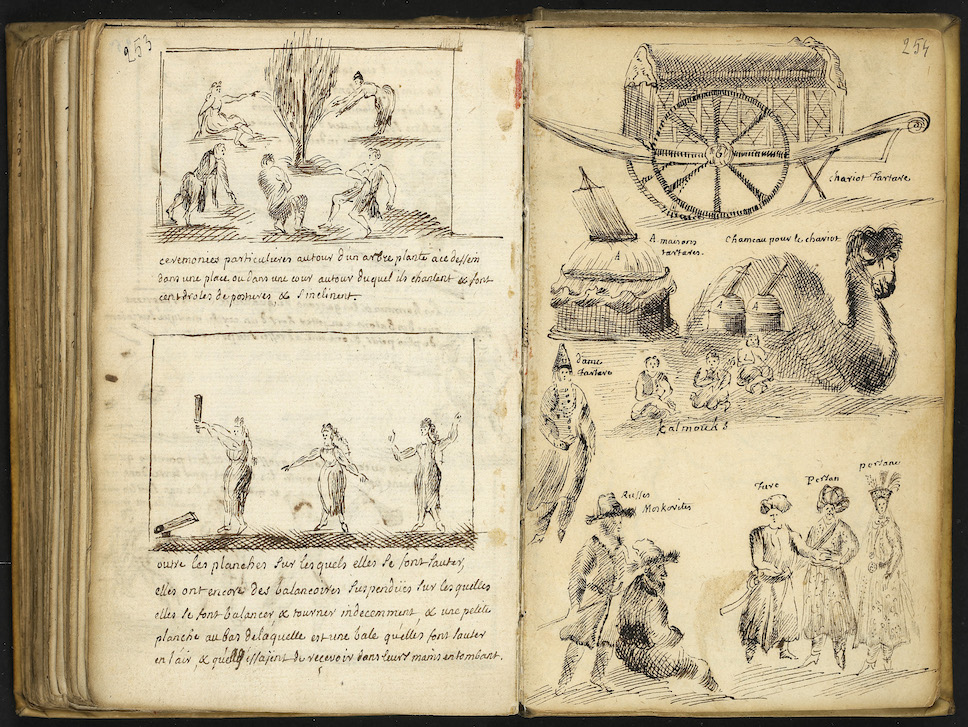 253
ceremonies particulieres autour d'un arbre planté a ce dessein
dans une place ou dans une cour autour du quel ils chantent & font
cent droles de postures & s'inclinent.
outre les planches sur lesquels elles se font sauter,
elles ont encore des balancoires suspendües sur lesquelles
elles se font balancer, & tourner indecemment, & une petite
planche au bas de laquelle est une bale qu'elles font sauter
en l'air, & qu'elles essajent de recevoir dans leurs mains en tombant.
254
chariot tartare
A maisons
tartares.
A
Chameau pour le chariot
dame
tartare
Kalmouks
Russes
Moskovites
Turc
Persan
persane